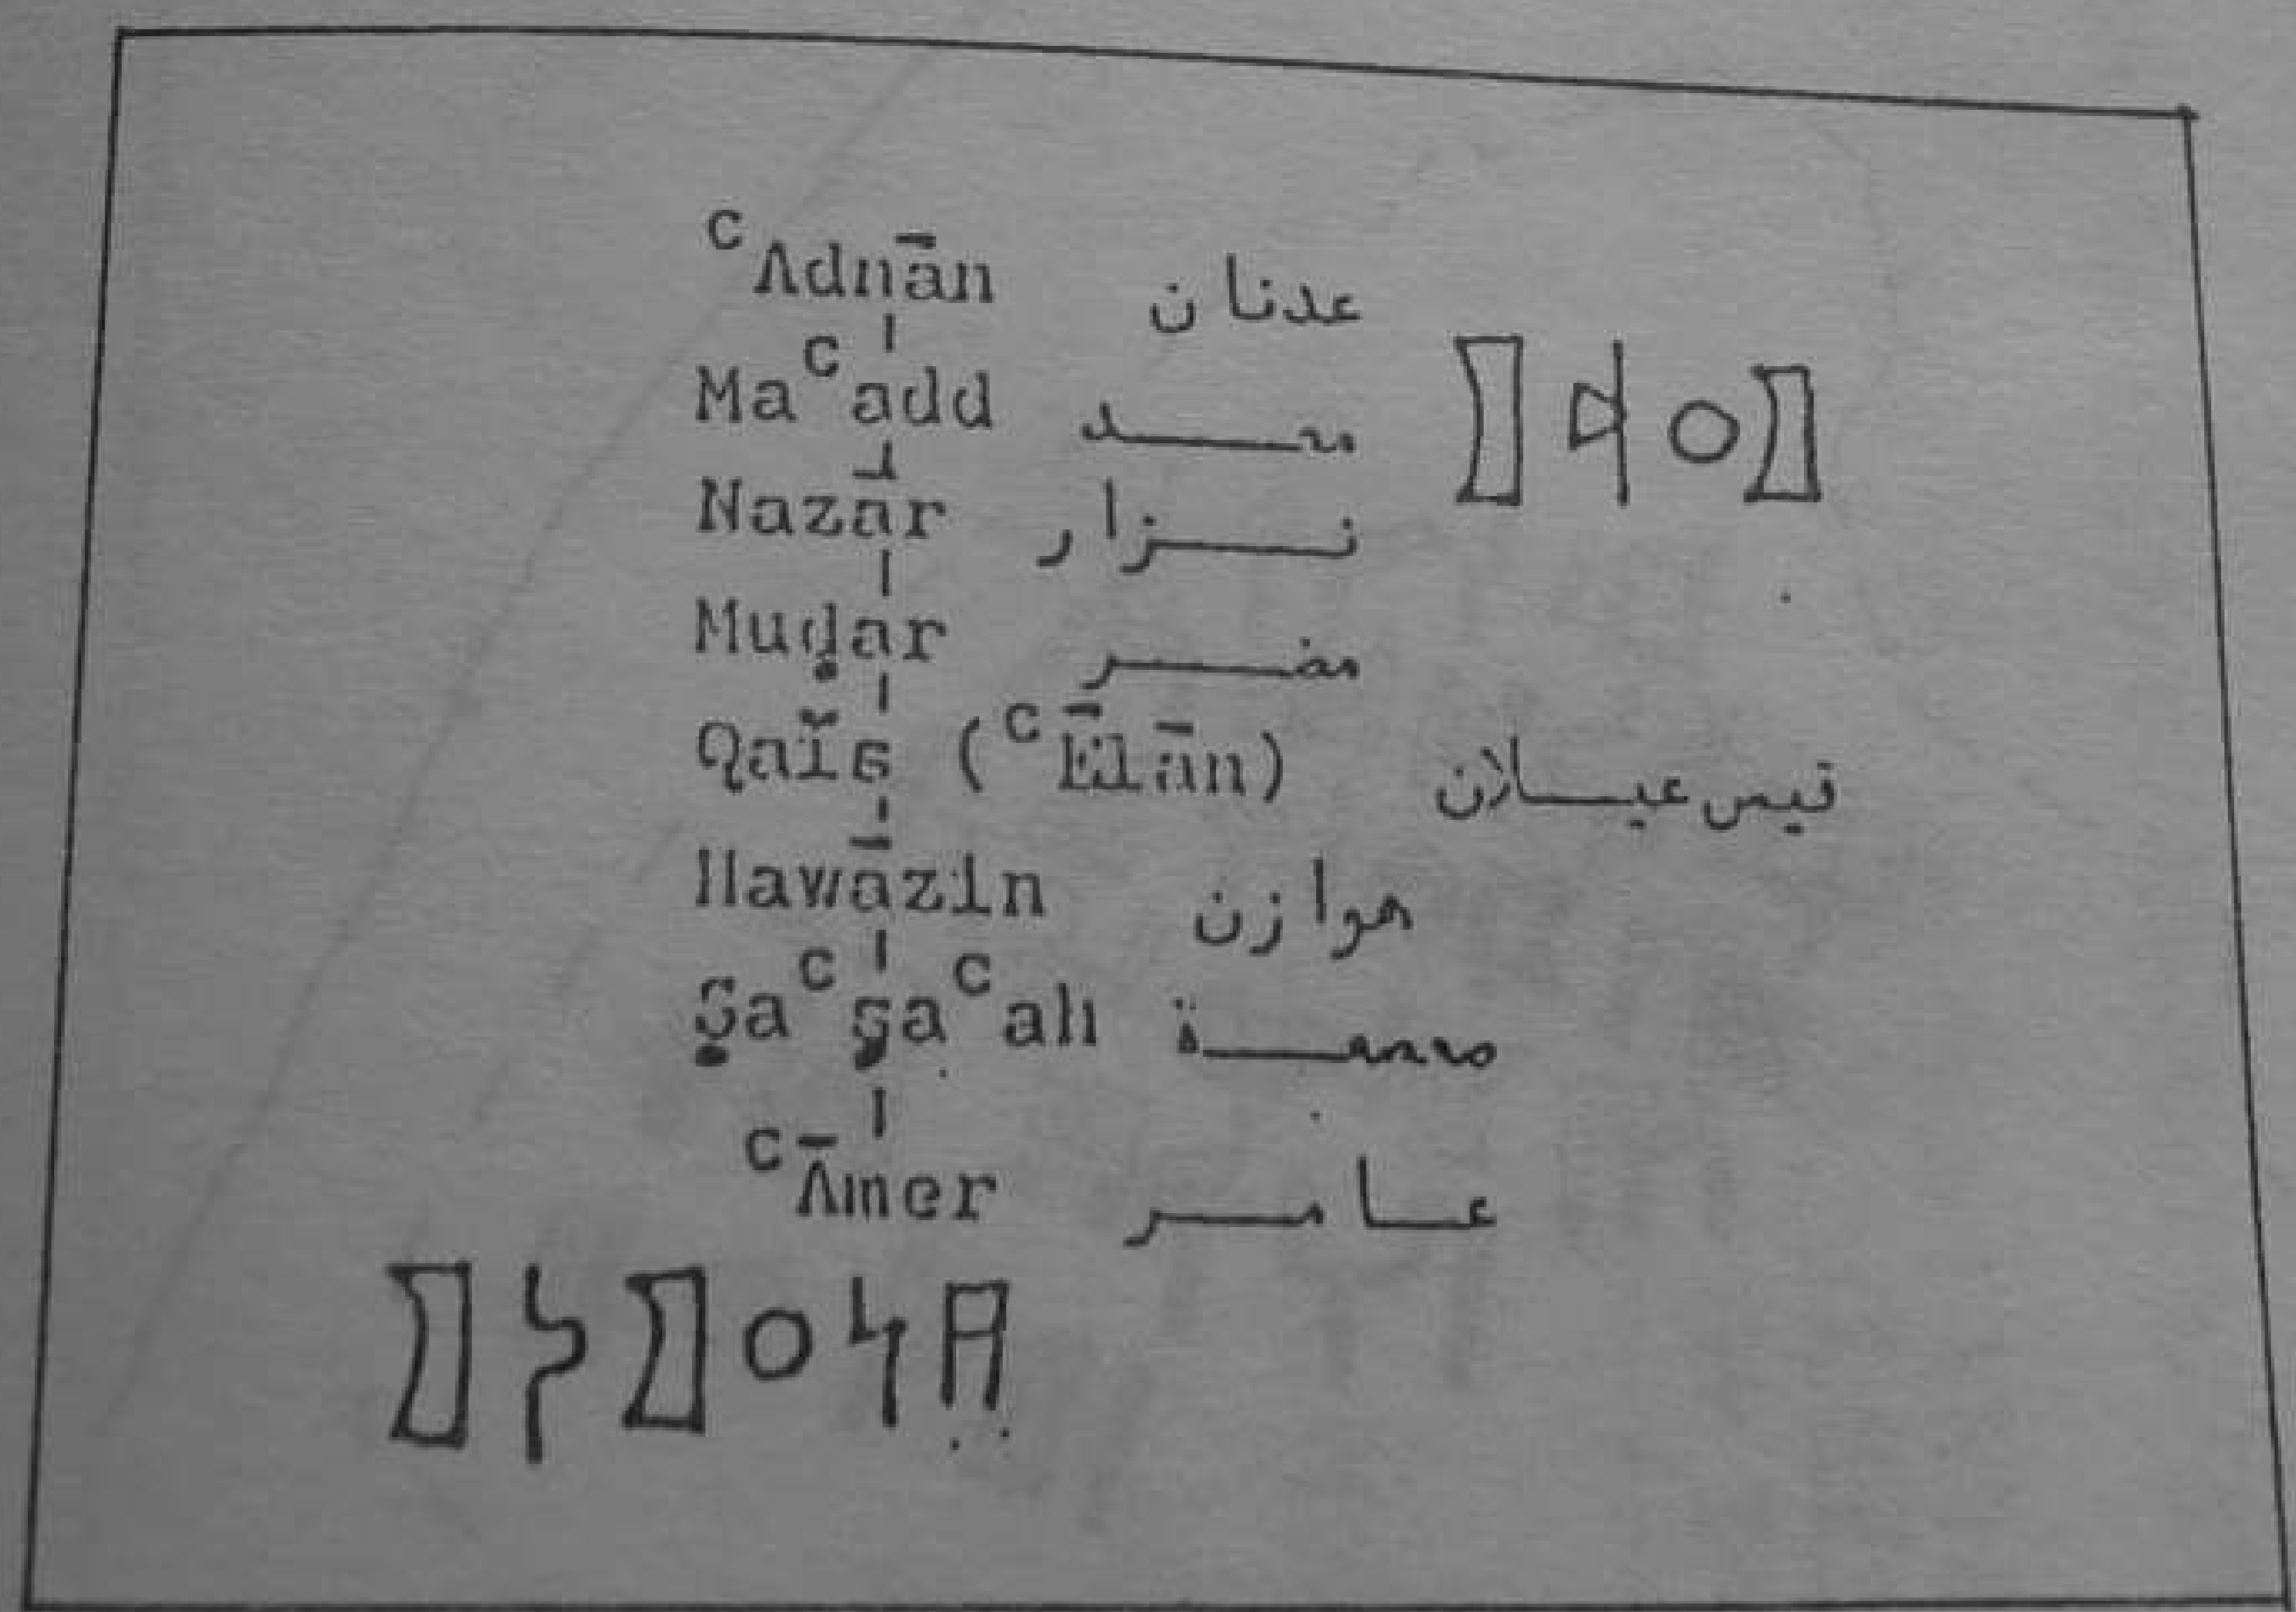 ᶜAdnān عدنان
Maᶜadd معد 𐩣𐩲𐩵𐩣
Nazār نزار
Muḍar مضر
Qaĭs (ᶜĒlān) قيس عيلان
Hawāzin هوازن
Ṣaᶜṣaᶜah صعصعة
ᶜĀmer عامر